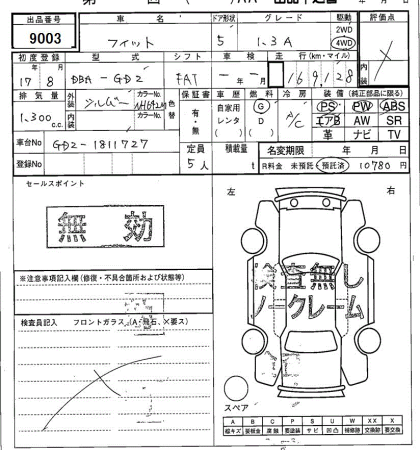 出品番号 車名 ドア形状 グレード 駆動 評価点
9003 フィット 5 1.3A 2WD 4WD
初度登録 型式 シフト 車検 走行(km・マイル) 内装
17年 8月 DBA-GD2 FAT -年 月 169,128
排気量 外装 カラーNo. 色替 保証書 車歴 燃料 冷房 装備(純正部品に限る)
1,300 c.c. シルバー NH642M 内装 カラーNo. 有・無 自家用 レンタ G D A/C PS PW ABS
( ) ( ) エアB AW SR
革 ナビ TV
車台No GD2-1811727 定員 積載量 名変期限 年 月 日
登録No 5人 t R料金 未預託 預託済 10780円
セールスポイント 左 右
無効
検査無し
ノークレーム
※注意事項記入欄(修復・不具合箇所および状態等)
検査員記入 フロントガラス(A・飛石、×要ス)
スペア
A B C P S U W XX X
線キズ 要板金 腐蝕 要塗装 サビ 凹凸 補修跡 交換跡 要交換